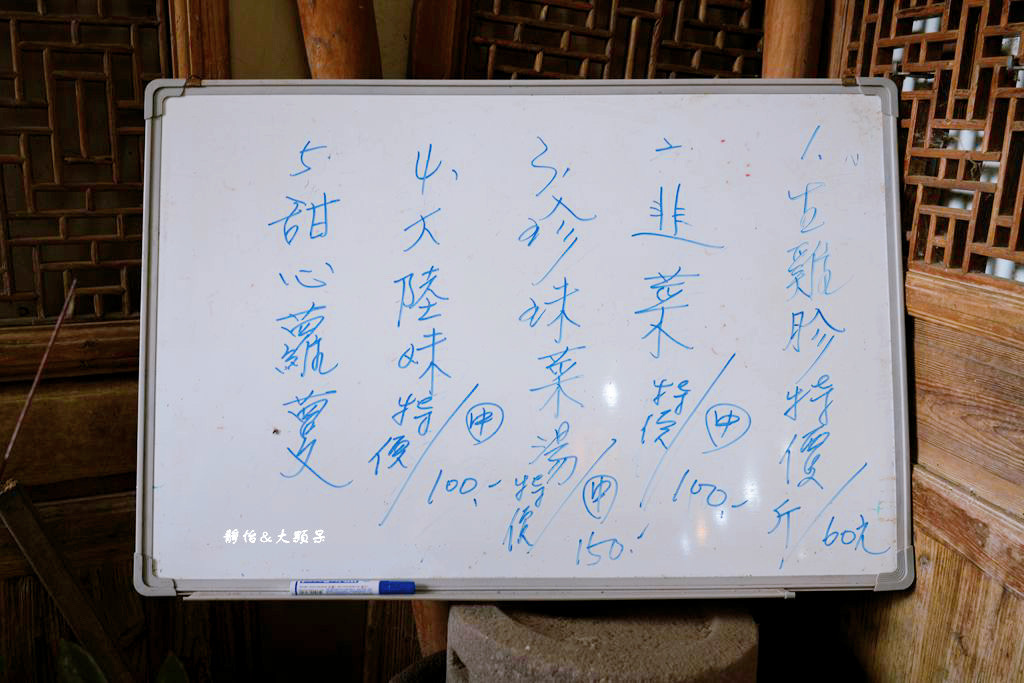 1. 生雞胗特價斤/60元
二. 韭菜特價/中100.-
3. 珍珠菜湯特價/中150.-
4. 大陸妹特價/中100.-
5. 甜心蘿蔓
靜怡&大顆呆